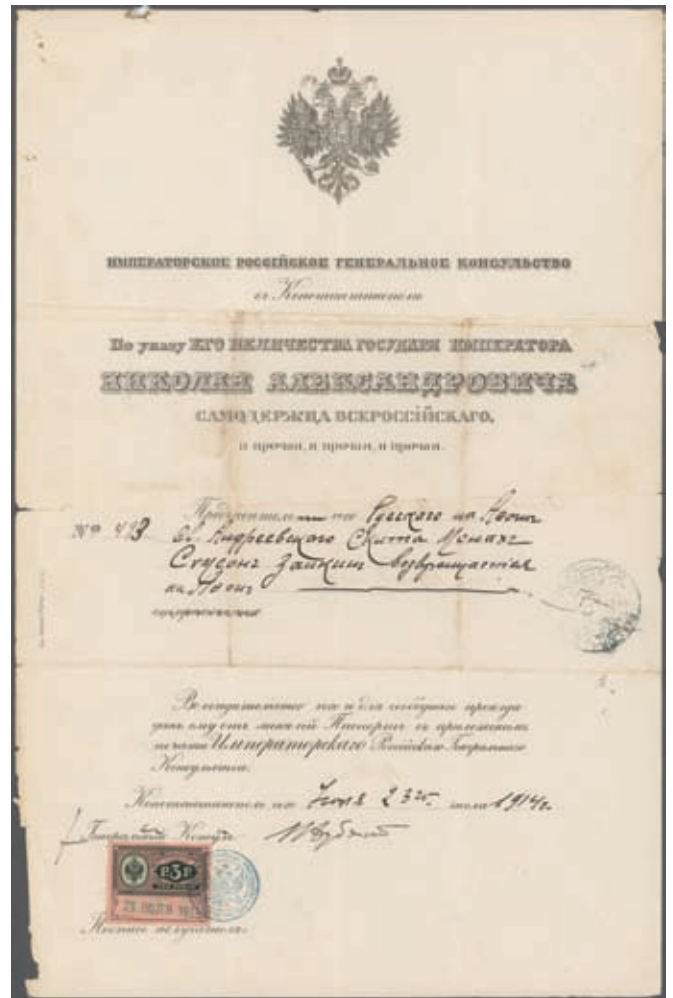 ИМПЕРАТОРСКОЕ РОССІЙСКОЕ ГЕНЕРАЛЬНОЕ КОНСУЛЬСТВО
въ Константинополѣ
По указу ЕГО ВЕЛИЧЕСТВА ГОСУДАРЯ ИМПЕРАТОРА
НИКОЛАЯ АЛЕКСАНДРОВИЧА
САМОДЕРЖЦА ВСЕРОССІЙСКАГО,
и прочая, и прочая, и прочая.
Русского на Аѳонѣ
№ 493. Св. Андреевскаго Скита Монахъ
возвращается
на Аѳонъ
Во свидѣтельство чего и для свободнаго проѣзда
данъ ему отъ меня сей Паспортъ съ приложеніемъ
печати Императорскаго Россійскаго Генеральнаго
Консульства.
Константинополь 23го числа 1914 г.
Генеральный Консулъ
Р3Р